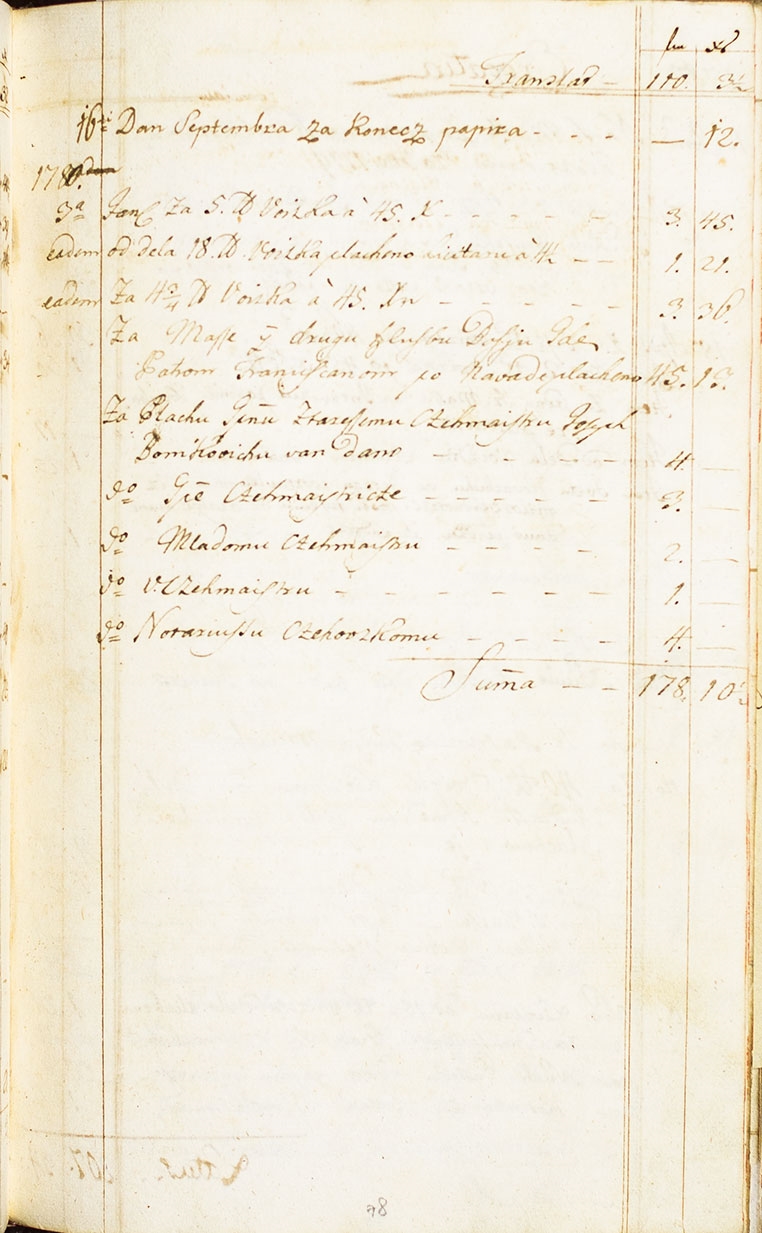 fn xl
Translad – 110. 3½
16ti Dan Septembra Za Konecz papira - - - — 12.
1780.
3a Jan Za 5. ℔ Voizka à 45. X - - - - - 3. 45.
eadem od dela 18. ℔. Voizka placheno à 4½ - - 1. 21.
eadem Za 4¾ ℔ Voizka à 45. Xn - - - - - 3. 36.
Za Masse y drugu slusbu Bosju
Patrom Franciscanom po Navade placheno 45. 13.
Za Plachu Gnu Ztaressemu Czehmaistru Joseph
Domkovichu van dano - - - - - 4. —
do Gie Czehmaistricze - - - - - - 3. —
do Mladomu Czehmaistru - - - - 2. —
do V. Czehmaistru - - - - - - 1. —
do Notariussu Czehovzkomu - - - - - 4. —
Sum̄a - - 178. 10½